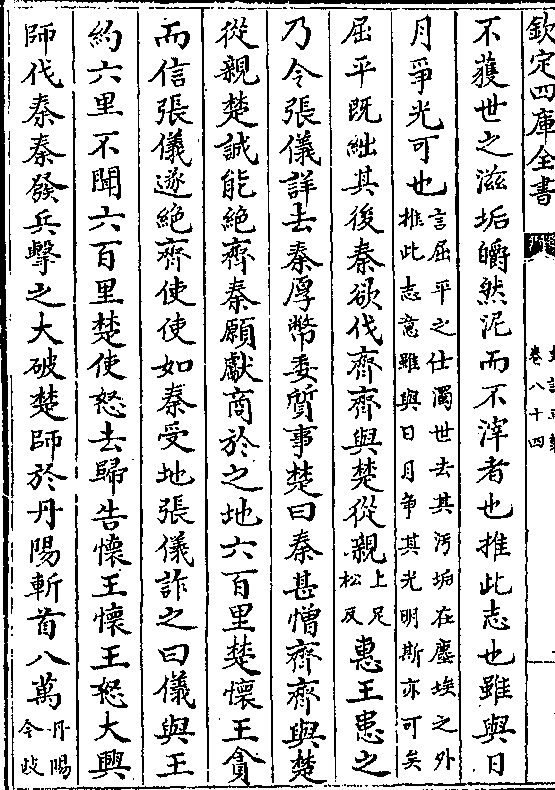 欽定四庫全書
卷八十四
不獲世之滋垢皭然泥而不滓者也推此志也雖與日
月爭光可也言屈平之仕濁世去其汚垢在塵埃之外推此志意雖與日月争其光明斯亦可矣
屈平既絀其後秦欲伐齊齊與楚從親上足松反惠王患之
乃令張儀詳去秦厚幣委質事楚曰秦甚憎齊齊與楚
從親楚誠能絶齊秦願獻商於之地六百里楚懷王貪
而信張儀遂絶齊使使如秦受地張儀詐之曰儀與王
約六里不聞六百里楚使怒去歸告懷王懷王怒大興
師伐秦秦發兵擊之大破楚師於丹陽斬首八萬丹陽今歧